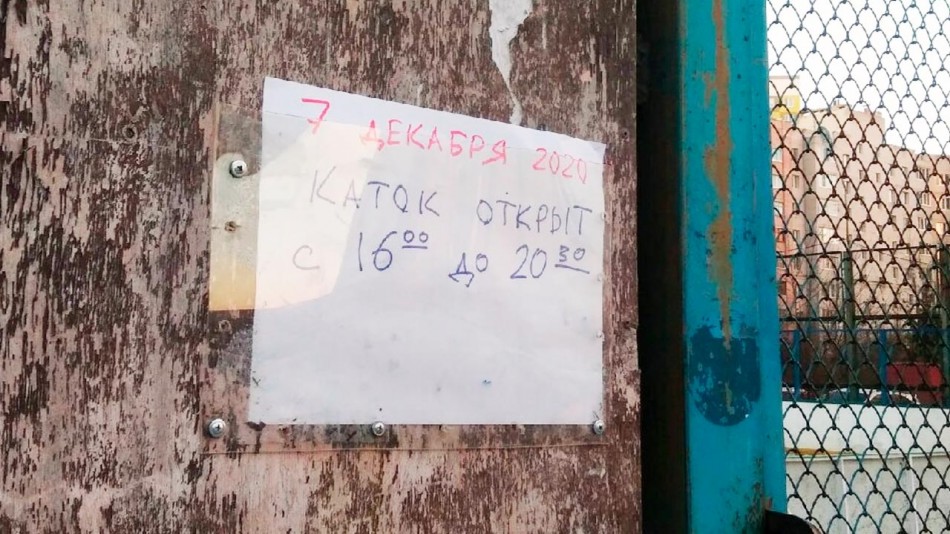 7 ДЕКАБРЯ 2020
КАТОК ОТКРЫТ
С 16⁰⁰ ДО 20³⁰